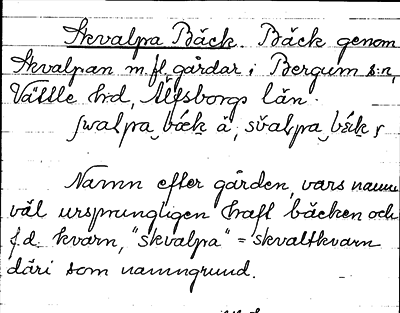 Skvalpa Bäck. Bäck genom
Skvalpan m.fl. gårdar i Bergum s:n,
Vättle h:d, Älfsborgs län.
ʃwalpa bäck å, sv̌alpa
Namn efter gården, vars namn
väl ursprungligen haft bäcken och
f.d. kvarn, "skvalpa" = skvaltkvarn
däri som namngrund.